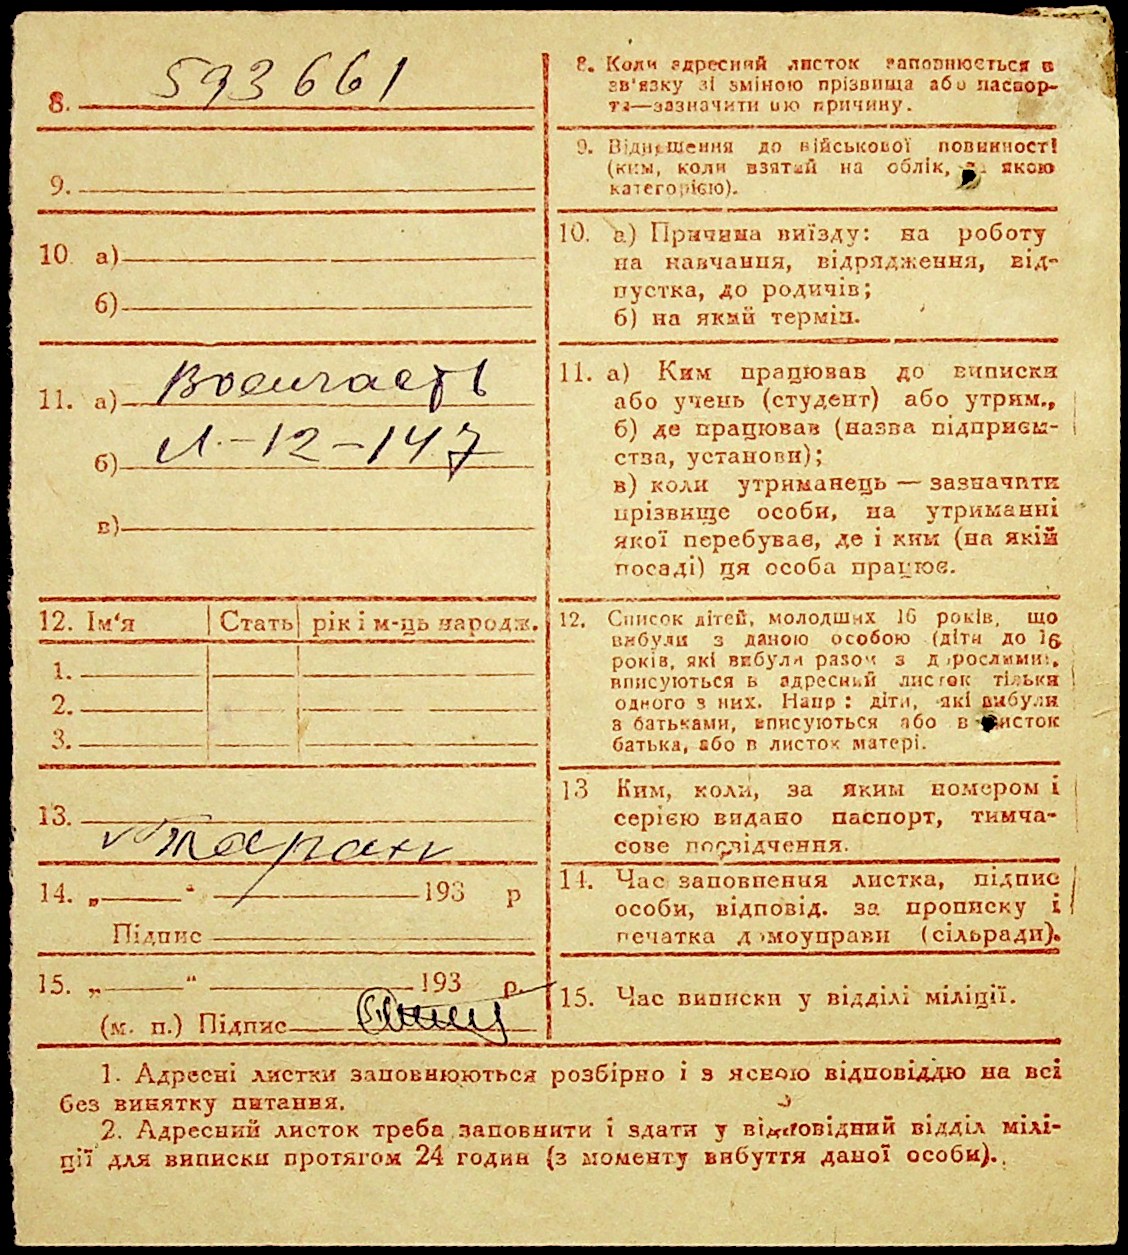 8. 593661
9.
10 а)
б)
11. а) Воєнчасть
б) Л.-12-147
в)
12. Ім'я Стать рік і м-ць народж.
1.
2.
3.
13.
Таран
14. „ “ 193 р
Підпис
15. „ “ 193 р.
(м. п.) Підпис
8. Коли адресний листок заповнюється в
зв'язку зі зміною прізвища або паспор-
та—зазначити цю причину.
9. Відношення до військової повинності
(ким, коли взятий на облік, за якою
категорією).
10. а) Причина виїзду: на роботу
на навчання, відрядження, від-
пустка, до родичів;
б) на який термін.
11. а) Ким працював до виписки
або учень (студент) або утрим.,
б) де працював (назва підприєм-
ства, установи);
в) коли утриманець — зазначити
прізвище особи, на утриманні
якої перебуває, де і ким (на якій
посаді) ця особа працює.
12. Список дітей, молодших 16 років, що
вибули з даною особою (діти до 16
років, які вибули разом з дорослими,
вписуються в адресний листок тільки
одного з них. Напр: діти, які вибули
з батьками, вписуються або в листок
батька, або в листок матері.
13 Ким, коли, за яким номером і
серією видано паспорт, тимча-
сове посвідчення.
14. Час заповнення листка, підпис
особи, відповід. за прописку і
печатка домоуправи (сільради).
15. Час виписки у відділі міліції.
1. Адресні листки заповнюються розбірно і з ясною відповіддю на всі
без винятку питання.
2. Адресний листок треба заповнити і здати у відповідний відділ мілі-
ції для виписки протягом 24 годин (з моменту вибуття даної особи).